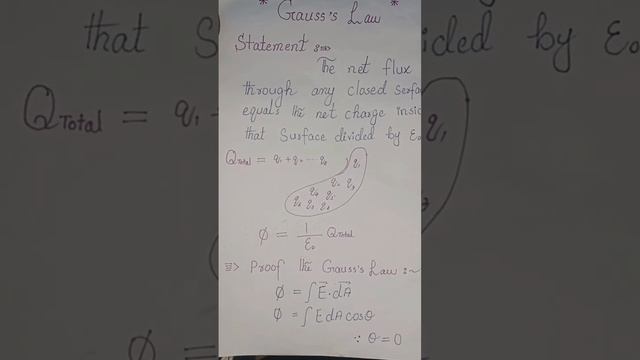 * Gauss's Law *
Statement :⇒
The net flux
through any closed Serfac
equals the net charge insid
that Surface divided by ε₀
Q Total = q₁ + q₂ ... q₈
q₁
q₂ q₃
q₄ q₅
φ = 1/ε₀ Q Total
⇒ Proof the Gauss's Law :~
φ = ∫ E⃗ · dA⃗
φ = ∫ E dA cosθ
∵ θ = 0